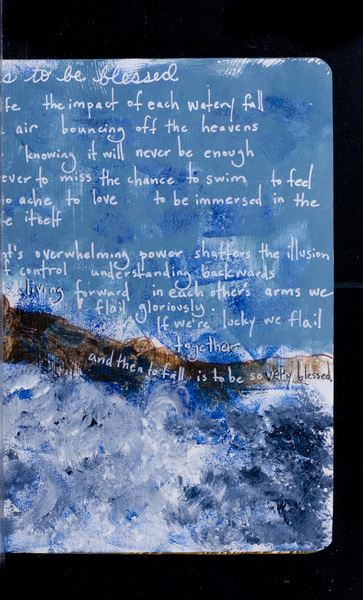 s to be blessed
fe the impact of each watery fall
air bouncing off the heavens
knowing it will never be enough
ever to miss the chance to swim to feel
to ache to love to be immersed in the
e itself
nt's overwhelming power shatters the illusion
f control understanding backwards
living forward in each other's arms we
flail gloriously.
If we're lucky we flail
together
and then to fall is to be so very blessed.